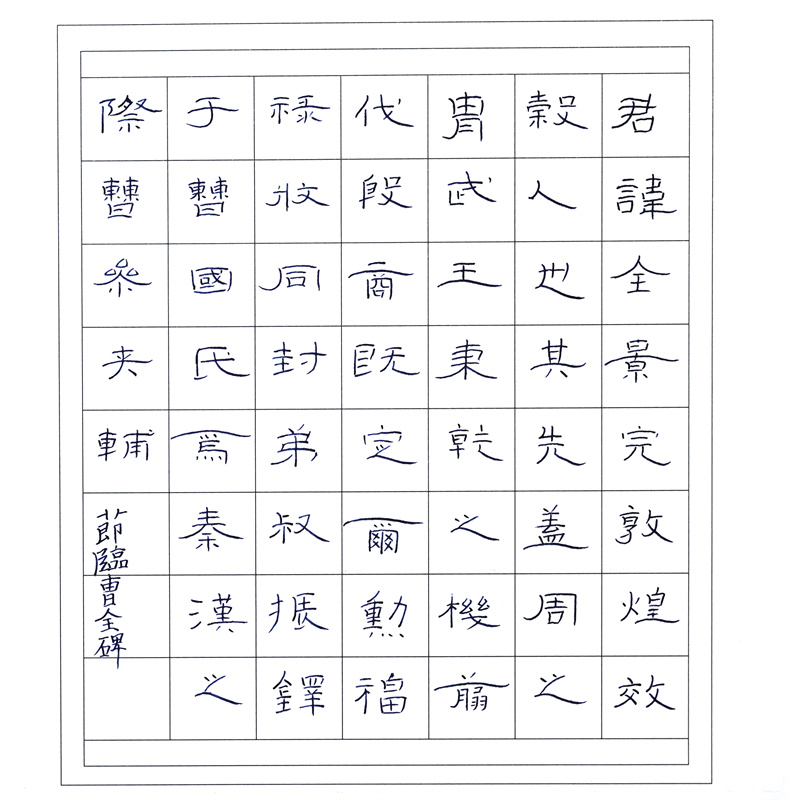 君諱全景完敦煌效
穀人也其先蓋周之
胄武王秉乾之機翦
伐殷商既定爾勳福
祿攸同封弟叔振鐸
于曹國氏焉秦漢之
際曹參夾輔
節臨曹全碑